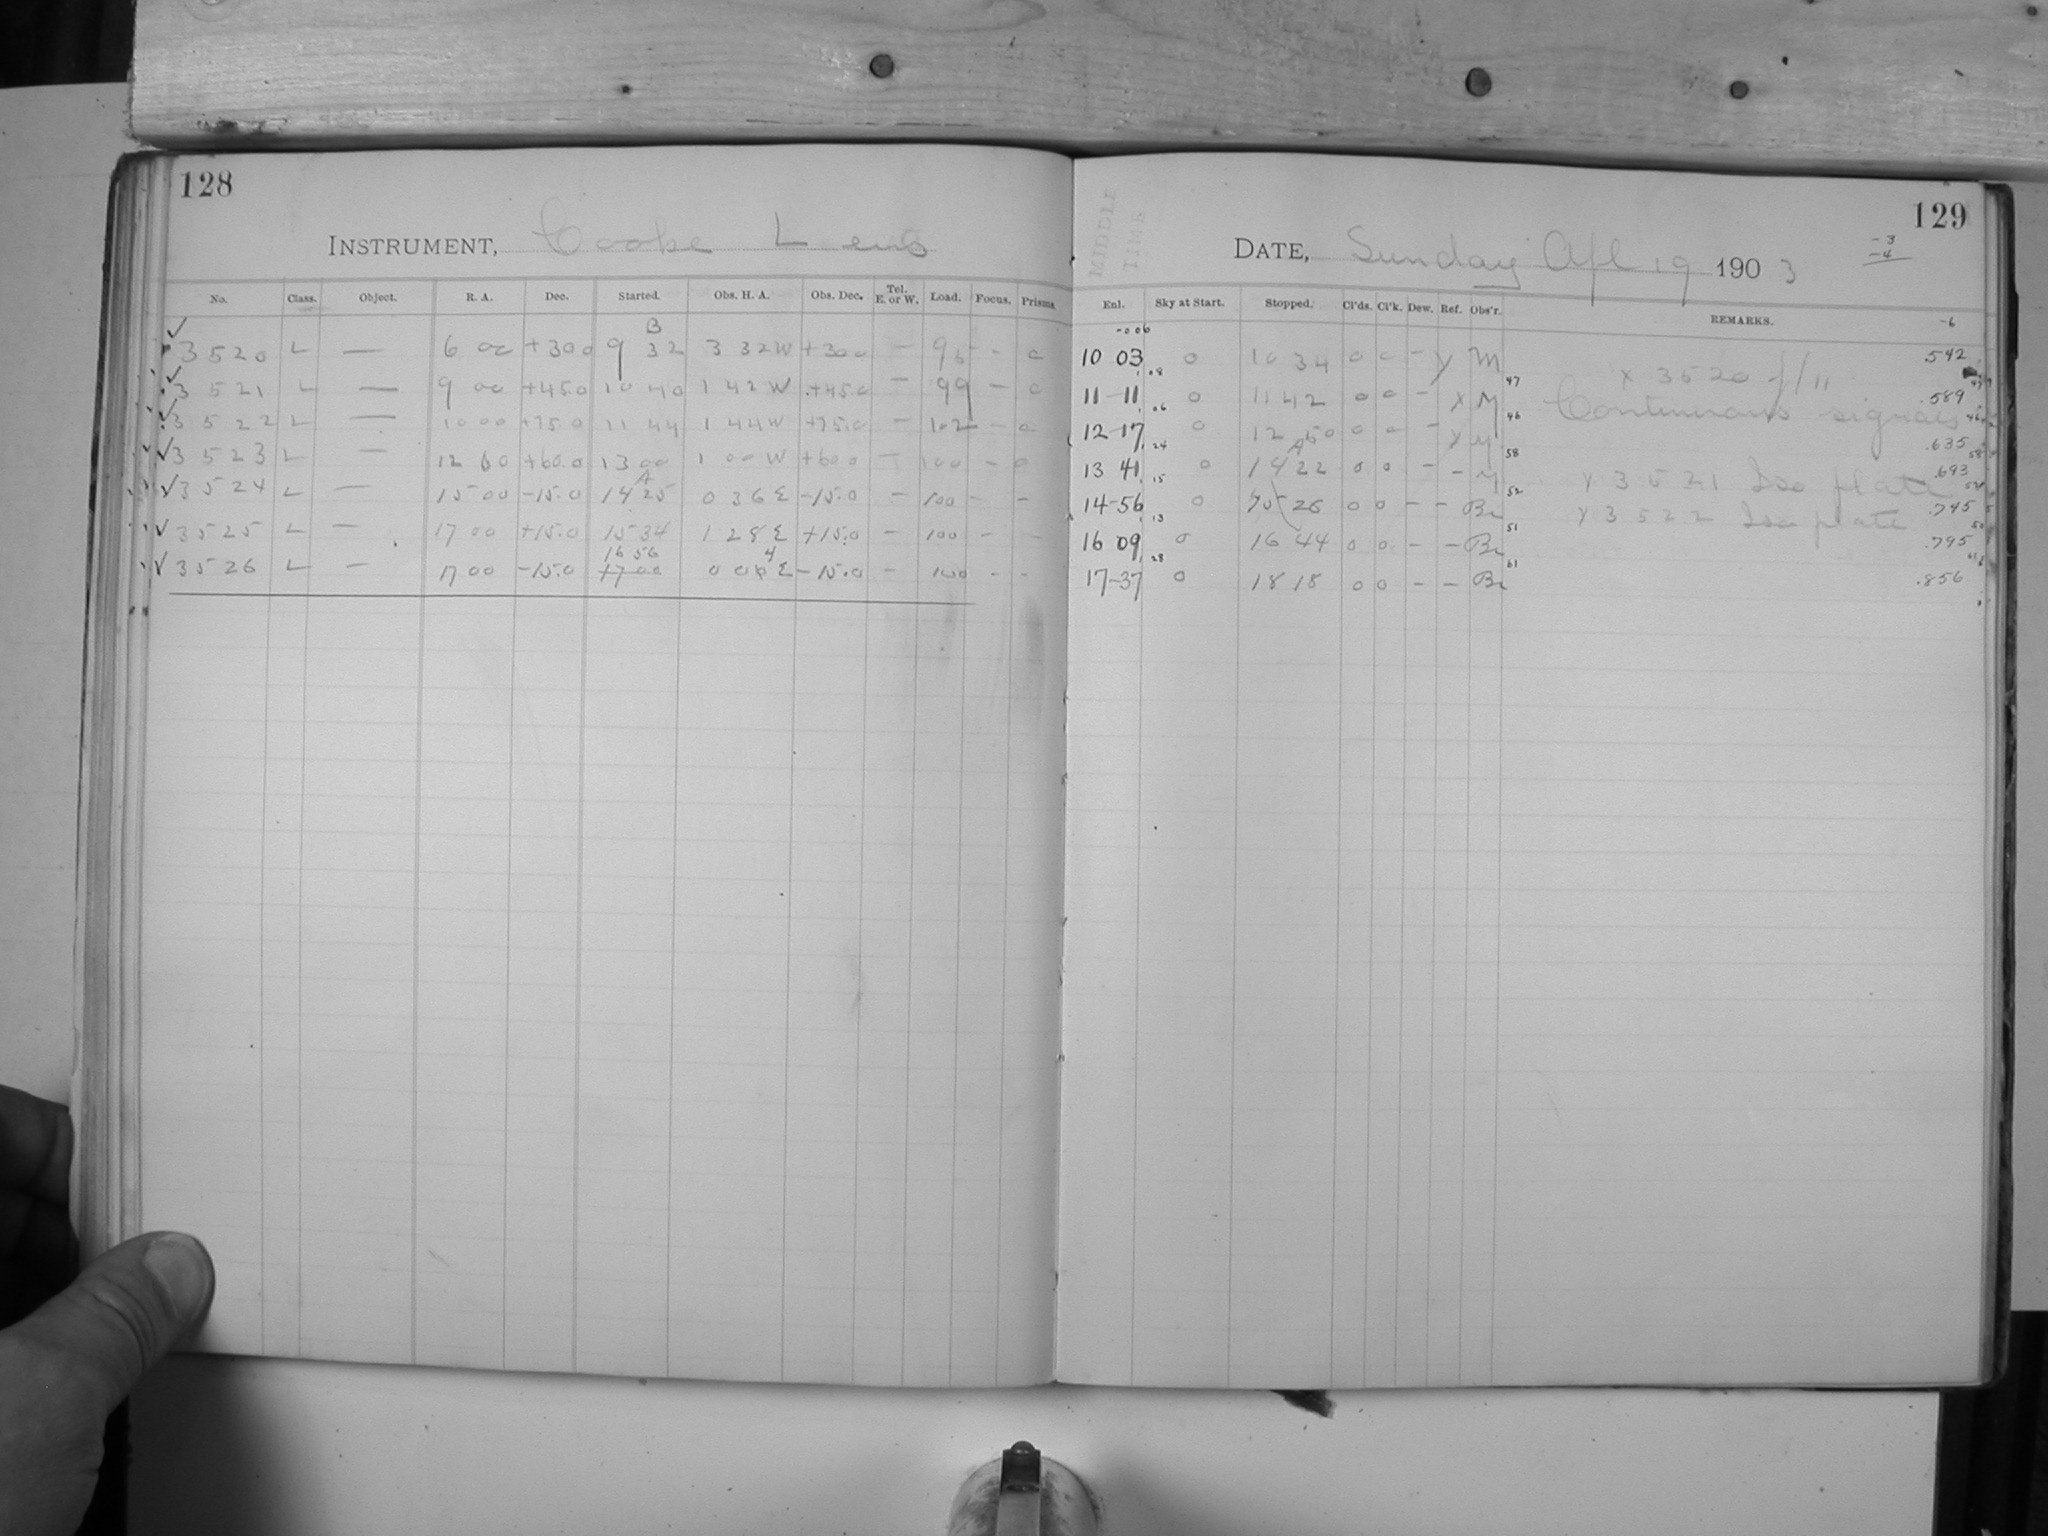 128
INSTRUMENT, Cooke Lens
No. Class. Object. R. A. Dec. Started. Obs. H. A. Obs. Dec. Tel. E. or W. Load. Focus. Prisms.
B
✓ 3520 L — 6 00 +30 0 9 32 3 32 W +30 0 — 95 - 0
✓ 3521 L — 9 00 +45.0 10 40 1 42 W +45.0 — 99 - 0
✓ 3522 L — 10 00 +75.0 11 44 1 44 W +75.0 — 102 - 0
✓ 3523 L — 12 00 +60.0 13 00 1 00 W +60 0 — 100 - 0
A
✓ 3524 L — 15 00 -15.0 14 25 0 36 E -15.0 — 100 - -
✓ 3525 L — 17 00 +15.0 15 34 1 28 E +15.0 — 100 - -
16 56 4
✓ 3526 L — 17 00 -15.0 17 00 0 0 E -15.0 — 100 - -
129
MIDDLE TIME
DATE, Sunday Apl 19 1903
-3
-4
Enl. Sky at Start. Stopped. Cl'ds. Cl'k. Dew. Ref. Obs'r. REMARKS.
-6
-006
10 03 0 10 34 0 0 - y M x 3520 f/11 .542
.08 47
11-11 0 11 42 0 0 - x M Continuous signals .589
.06 46
12-17 0 12 50 0 0 - x M .635
.24 A 58
13 41 0 14 22 0 0 - - M x 3521 Iso plate .693
.15 52
14-56 0 15 26 0 0 - - Br x 3522 Iso plate .745
.13 51
16 09 0 16 44 0 0 - - Br .795
.28 61
17-37 0 18 18 0 0 - - Br .856